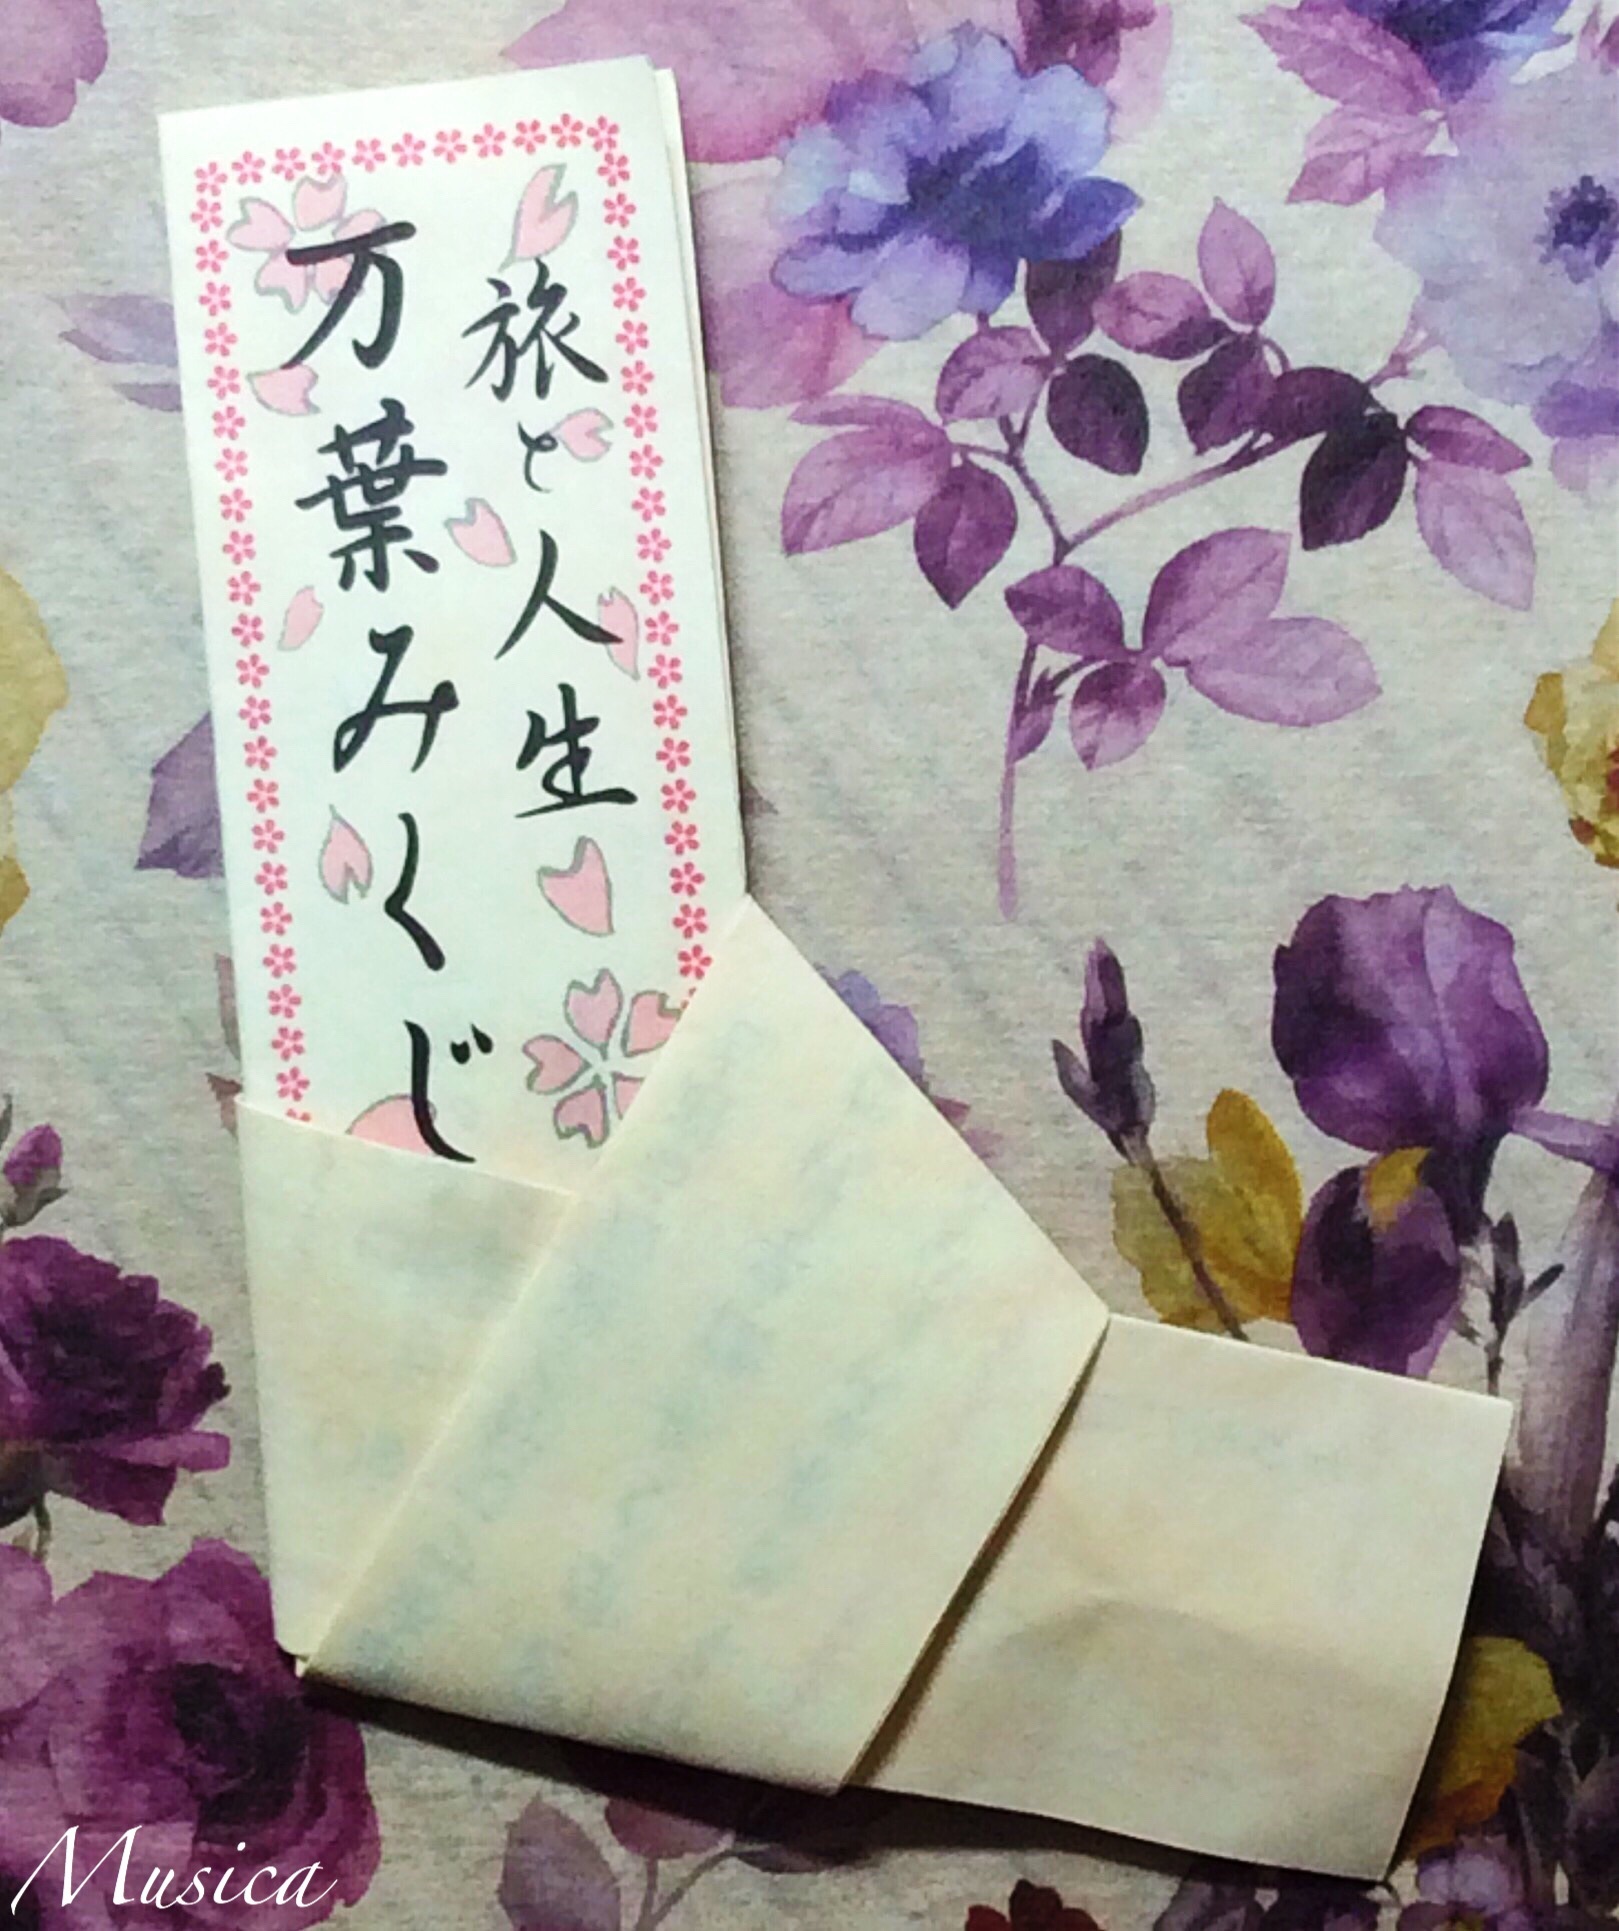 旅と人生
万葉みくじ
Musica